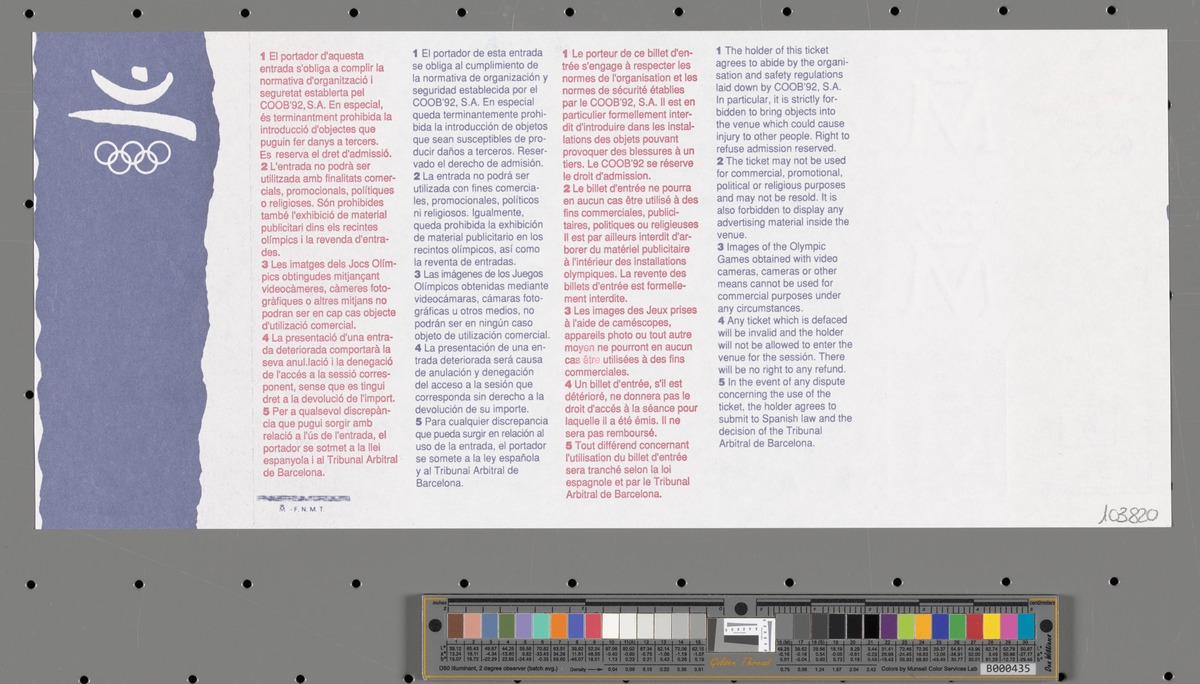 1 El portador d'aquesta
entrada s'obliga a complir la
normativa d'organització i
seguretat establerta pel
COOB'92, S.A. En especial,
és terminantment prohibida la
introducció d'objectes que
puguin fer danys a tercers.
Es reserva el dret d'admissió.
2 L'entrada no podrà ser
utilitzada amb finalitats comer-
cials, promocionals, polítiques
o religioses. Són prohibides
també l'exhibició de material
publicitari dins els recintes
olímpics i la revenda d'entra-
des.
3 Les imatges dels Jocs Olím-
pics obtingudes mitjançant
videocàmeres, càmeres foto-
gràfiques o altres mitjans no
podran ser en cap cas objecte
d'utilizació comercial.
4 La presentació d'una entra-
da deteriorada comportarà la
seva anul.lació i la denegació
de l'accés a la sessió corres-
ponent, sense que es tingui
dret a la devolució de l'import.
5 Per a qualsevol discrepàn-
cia que pugui sorgir amb
relació a l'ús de l'entrada, el
portador se sotmet a la llei
espanyola i al Tribunal Arbitral
de Barcelona.
M - F. N. M. T.
1 El portador de esta entrada
se obliga al cumplimiento de
la normativa de organización y
seguridad establecida por el
COOB'92, S.A. En especial
queda terminantemente prohi-
bida la introducción de objetos
que sean susceptibles de pro-
ducir daños a terceros. Reser-
vado el derecho de admisión.
2 La entrada no podrá ser
utilizada con fines comercia-
les, promocionales, políticos
ni religiosos. Igualmente,
queda prohibida la exhibición
de material publicitario en los
recintos olímpicos, así como
la reventa de entradas.
3 Las imágenes de los Juegos
Olímpicos obtenidas mediante
videocámaras, cámaras foto-
gráficas u otros medios, no
podrán ser en ningún caso
objeto de utilización comercial.
4 La presentación de una en-
trada deteriorada será causa
de anulación y denegación
del acceso a la sesión que
corresponda sin derecho a la
devolución de su importe.
5 Para cualquier discrepancia
que pueda surgir en relación al
uso de la entrada, el portador
se somete a la ley española
y al Tribunal Arbitral de
Barcelona.
1 Le porteur de ce billet d'en-
trée s'engage à respecter les
normes de l'organisation et les
normes de sécurité établies
par le COOB'92, S.A. Il est en
particulier formellement inter-
dit d'introduire dans les instal-
lations des objets pouvant
provoquer des blessures à un
tiers. Le COOB'92 se réserve
le droit d'admission.
2 Le billet d'entrée ne pourra
en aucun cas être utilisé à des
fins commerciales, publici-
taires, politiques ou religieuses
Il est par ailleurs interdit d'ar-
borer du matériel publicitaire
à l'intérieur des installations
olympiques. La revente des
billets d'entrée est formelle-
ment interdite.
3 Les images des Jeux prises
à l'aide de caméscopes,
appareils photo ou tout autre
moyen ne pourront en aucun
cas être utilisées à des fins
commerciales.
4 Un billet d'entrée, s'il est
détérioré, ne donnera pas le
droit d'accés à la séance pour
laquelle il a été émis. Il ne
sera pas remboursé.
5 Tout différend concernant
l'utilisation du billet d'entrée
sera tranché selon la loi
espagnole et par le Tribunal
Arbitral de Barcelona.
1 The holder of this ticket
agrees to abide by the organi-
sation and safety regulations
laid down by COOB'92, S.A.
In particular, it is strictly for-
bidden to bring objects into
the venue which could cause
injury to other people. Right to
refuse admission reserved.
2 The ticket may not be used
for commercial, promotional,
political or religious purposes
and may not be resold. It is
also forbidden to display any
advertising material inside the
venue.
3 Images of the Olympic
Games obtained with video
cameras, cameras or other
means cannot be used for
commercial purposes under
any circumstances.
4 Any ticket which is defaced
will be invalid and the holder
will not be allowed to enter the
venue for the sessión. There
will be no right to any refund.
5 In the event of any dispute
concerning the use of the
ticket, the holder agrees to
submit to Spanish law and the
decision of the Tribunal
Arbitral de Barcelona.
103820
inches
centimeters
D50 Illuminant, 2 degree observer (batch avg.)
Density
Golden Thread
Colors by Munsell Color Services Lab
B000435